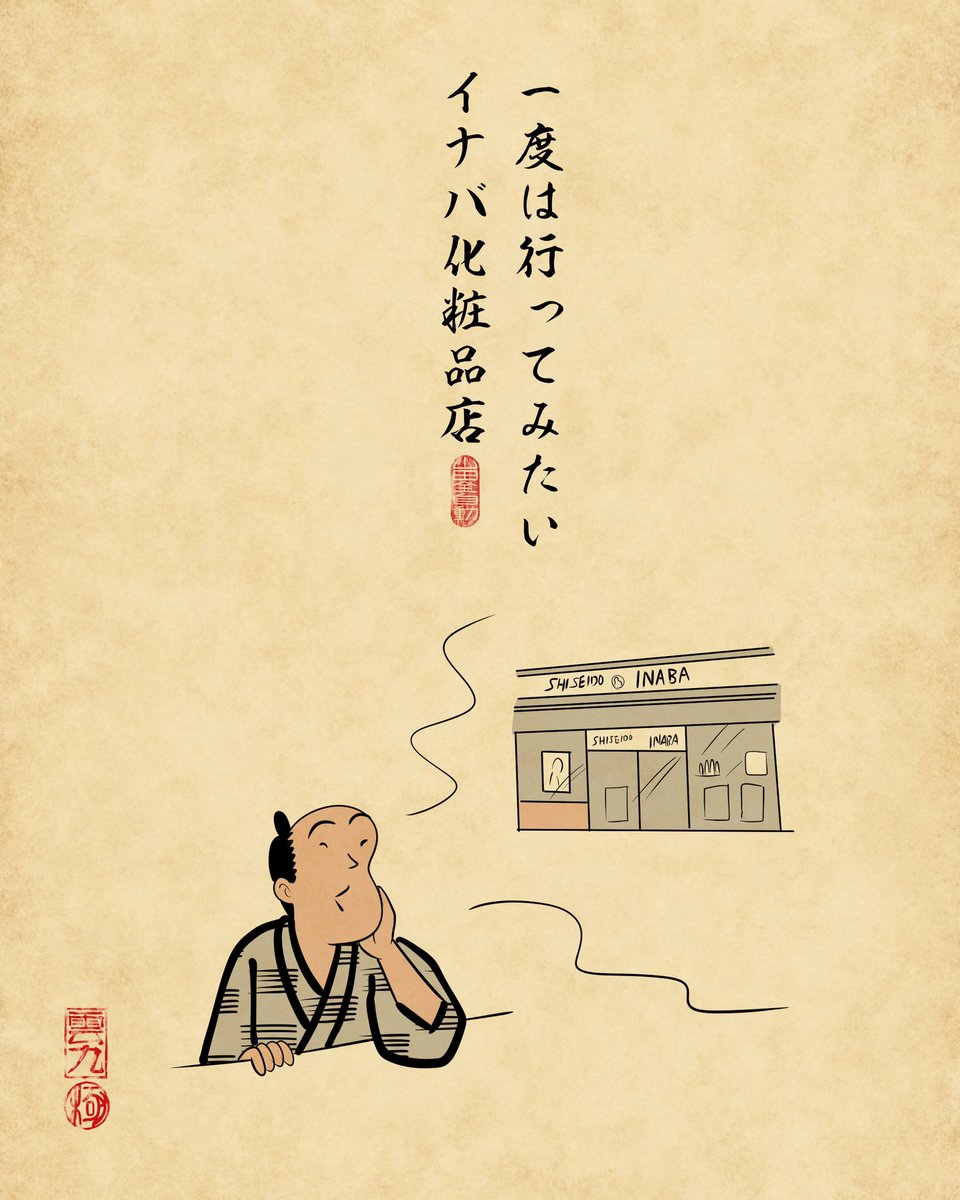 一度は行ってみたい
イナバ化粧品店
SHISEIDO INABA
SHISEIDO INABA